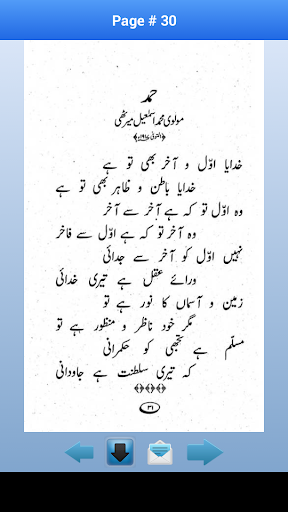 Page # 30
حمد
مولوی محمد اسمٰعیل میرٹھی
خدایا اوّل و آخر بھی تو ہے
خدایا باطن و ظاہر بھی تو ہے
وہ اوّل تو کہ ہے آخر سے آخر
وہ آخر تو کہ ہے اوّل سے فاخر
نہیں اوّل کو آخر سے جدائی
ورائے عقل ہے تیری خدائی
زمین و آسماں کا نور ہے تو
مگر خود ناظر و منظور ہے تو
مسلّم ہے تجھی کو حکمرانی
کہ تیری سلطنت ہے جاودانی
۳۱